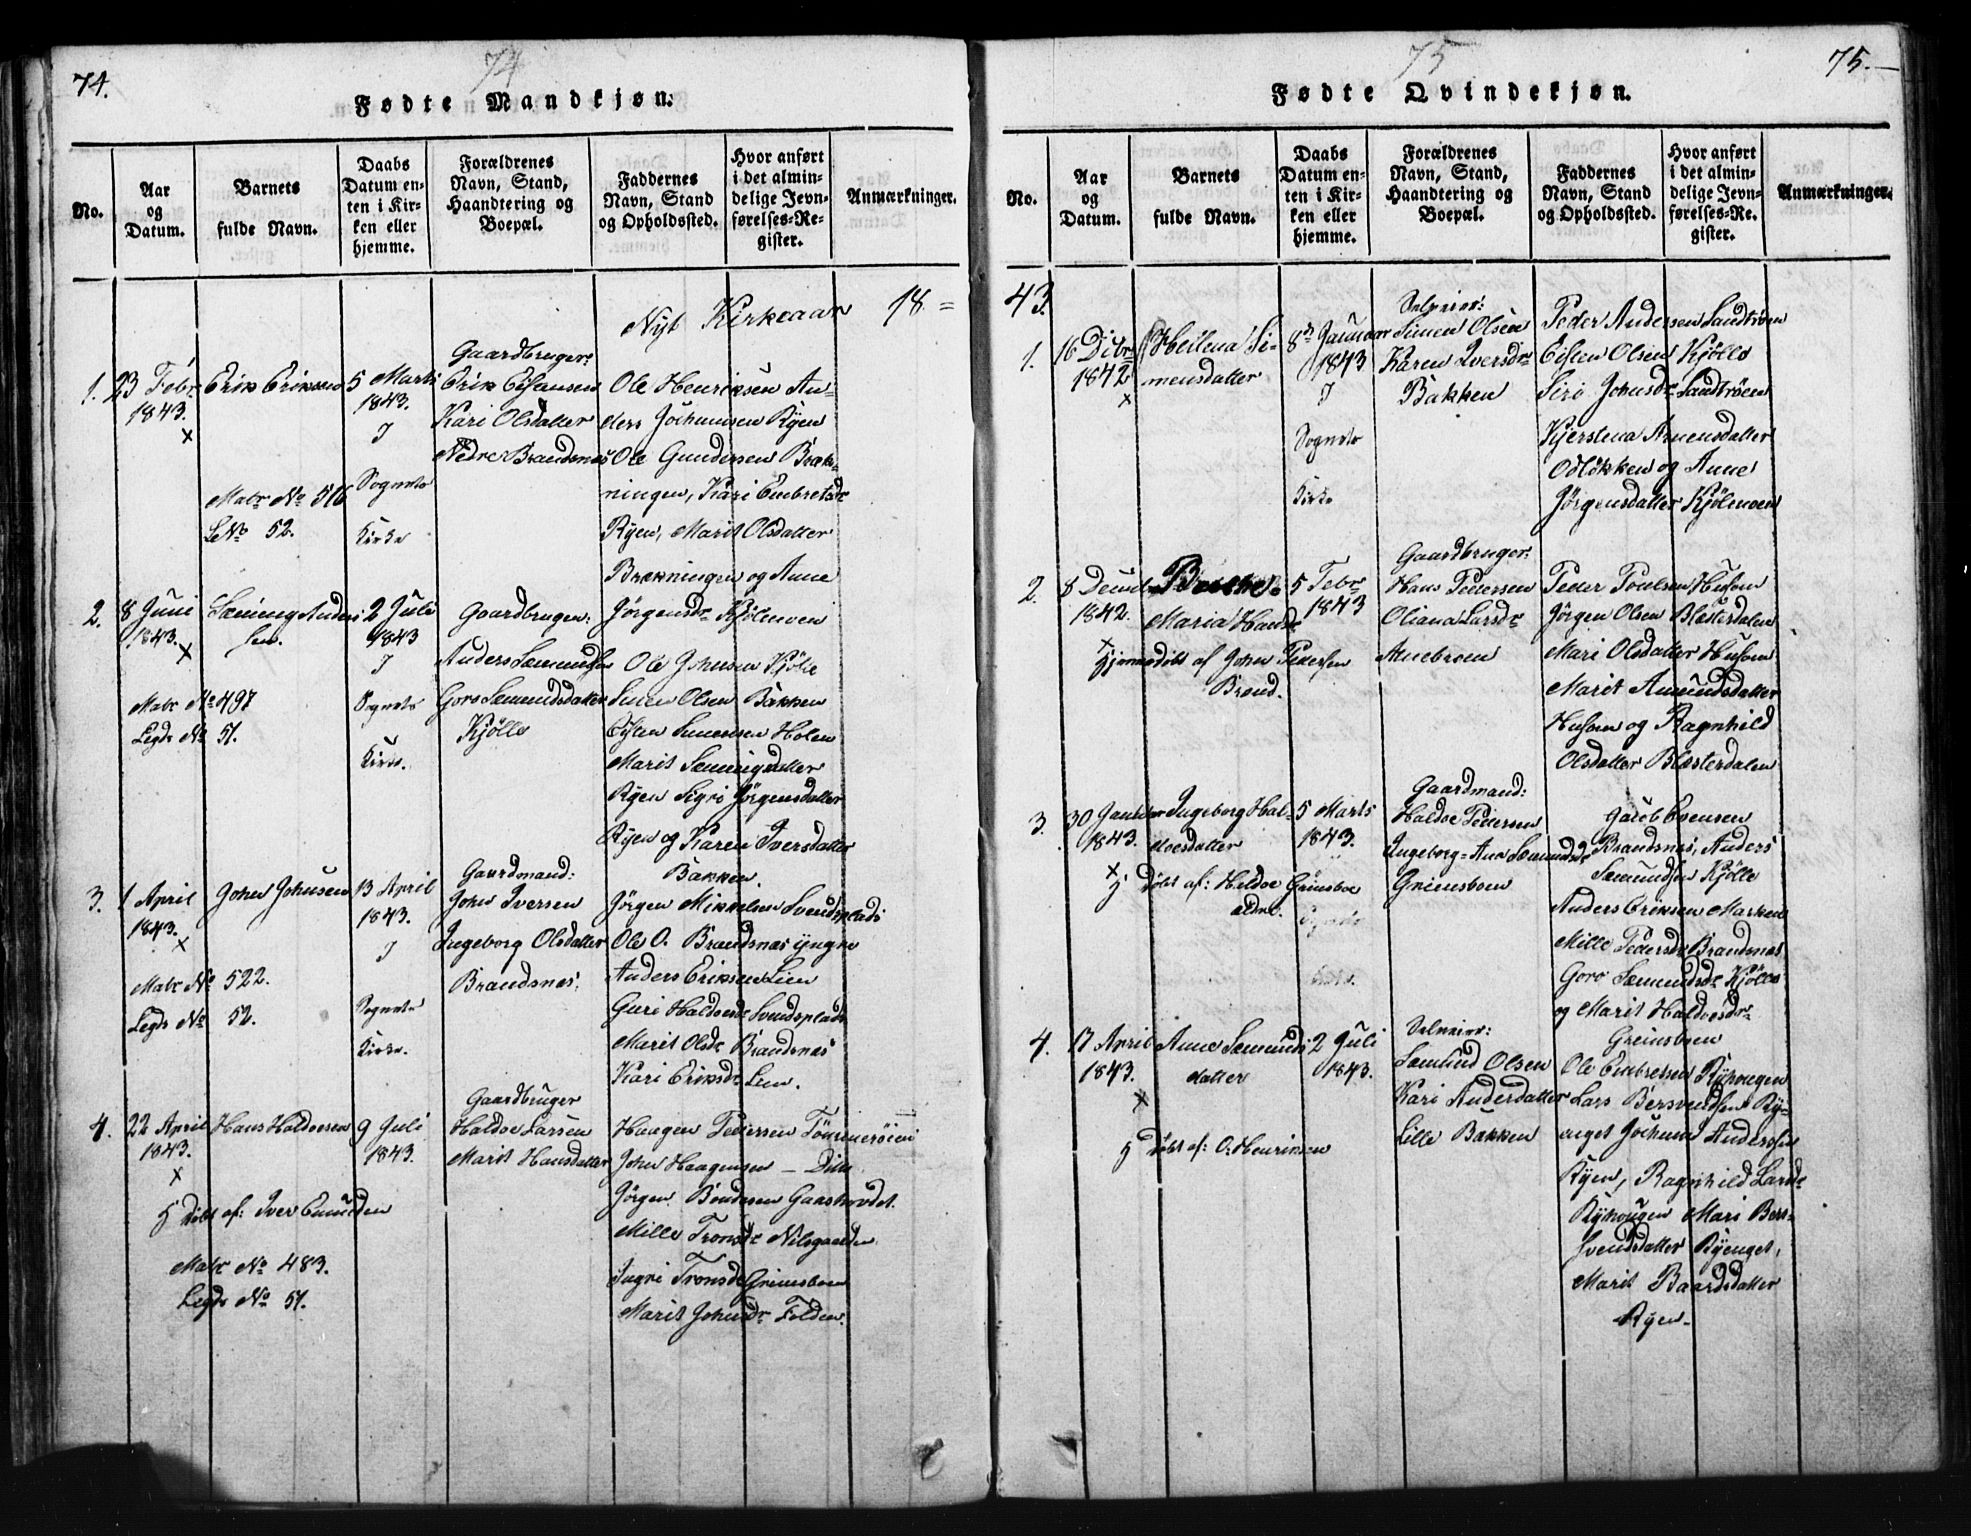 74.
74
Fødte Mandkjøn.
No.
Aar
og
Datum.
Barnets
fulde Navn.
Daabs
Datum en-
ten i Kir-
ken eller
hjemme.
Forældrenes
Navn, Stand,
Haandtering og
Boepæl.
Faddernes
Navn, Stand
og Opholdssted.
Hvor anført
i det almin-
delige Jevn-
førelses-Re-
gister.
Anmærkninger.
Nyt Kirkeaar 18 =
1.
23 Febr
1843.
x
Erik Eriksen
Matr No 516
LNo 52.
5 Marts
1843.
I
Sognets
Kirke
Gaardbruger:
Erik
Kari Olsdatter
Nedre Brandsnes
Ole Henriksen An-
ders Jochumsen Ryen
Ole Gundersen Bræk-
ningen, Kari Embretsdr
Ryen, Marit Olsdatter
Brækningen og Anne
Jørgensdr Kjølmoen
2.
8 Juni
1843.
x
Sæming Anders
sen.
Matr No 497
Legds No 51.
2 Juli
1843
I
Sognets
Kirke.
Gaardbruger:
Anders Sæmundsen
Goro Sæmundsdatter
Kjølle
Ole Johnsen Kjølle
Simen Olsen Bakken
Eisten Simensen Holen
Marit Sæmingsdatter
Ryen Sigri Jørgensdatter
Ryen og Karen Iversdatter
Bakken.
3.
1 April
1843.
x
John Johnsen
Matr No 522.
Legds No 52.
13 April
1843.
I
Sognets
Kirke.
Gaardmand:
John Iversen
Ingeborg Olsdatter
Brandsnes.
Jørgen Mikkelsen Svendsplads
Ole O. Brandsnes yngre
Anders Eriksen Lien
Guri Haldosdr Svendsplads
Marit Olsdr Brandsnes
Kari Eriksdr Lien.
4.
22 April
1843.
x
Hans Haldoesen
H Døbt af: Iver
Matr No 483.
Legds No 51.
9 Juli
1843.
Gaardbruger
Haldoe Larsen
Marit Hansdatter
Haagen Pedersen Tømmeraasen
John Haagensen – Dito
Jørgen Bendixen Gaashovdet.
Mille Tronsdr Nilsgaarden
Ingri Tronsdr Grimsboen
Marit Johnsdr Folden.
75
75.
Fødte Qvindekjøn.
No.
Aar
og
Datum.
Barnets
fulde Navn.
Daabs
Datum en-
ten i Kir-
ken eller
hjemme.
Forældrenes
Navn, Stand,
Haandtering og
Boepæl.
Faddernes
Navn, Stand
og Opholdssted.
Hvor anført
i det almin-
delige Jevn-
førelses-Re-
gister.
Anmærkninger.
43.
1.
16 Decbr
1842
x
Si-
mensdatter
8de Januar
1843
I
Sognets
Kirke
Selveier:
Simen Olsen
Karen Iversdr
Bakken
Peder Andersen Sandtrøen
Eisten Olsen Kjølle
Siri Johnsdr Sandtrøen
Kjerstena Arnensdatter
Odløkken og Anne
Jørgensdatter Kjølmoen
2.
8 Decembr
1842.
x
Maria Hansdr
Hjemmedøbt af John Pedersen
Brend.
5 Febr
1843
Gaardbruger:
Hans Pedersen
Oliana Larsdr
Anebroen
Peder Poulsen Husom
Jørgen Olsen Blæsterdalen
Mari Olsdatter Husom
Marit Amundsdatter
Husom og Ragnhild
Olsdatter Blæsterdalen
3.
30 Januar
1843.
x
Ingeborg Hal-
doesdatter
H Døbt af: Haldoe Grimsboe
ældre.
5 Marts
1843.
Sognets
Kirke.
Gaardmand:
Haldoe Pedersen
Ingeborg-Ana Sæmundsdr
Grimsboen
Jacob Evensen
Brandsnes, Anders
Sæmundsen Kjølle
Anders Eriksen Marken
Mille Pedersdr Brandsnes
Goro Sæmundsdr Kjølle
og Marit Haldoesdr
Grimsboen
4.
17 April
1843.
x
Anne Sæmunds
datter
H Døbt af: O: Henriksen
2 Juli
1843.
Selveier:
Sæmund Olsen
Kari Andersdatter
Lille Bakken
Ole Embretsen Ryhougen
Lars Bersvendsen Ry-
enget Jochum Andersen
Ryen, Ragnhild Larsdr
Ryhougen Mari Ber-
svendsdatter Ryenget,
Marit Baardsdatter
Ryen.